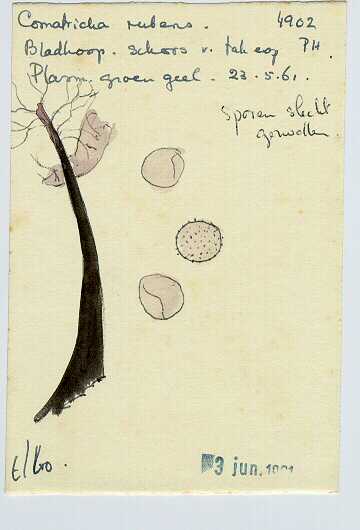 Comatricha rubens. 4902
Bladhoop. schors v. tak eop PH.
Plasm. groen geel. 23.5.61.
Sporen slecht
gezwollen.
E/bo.
3 jun. 1961